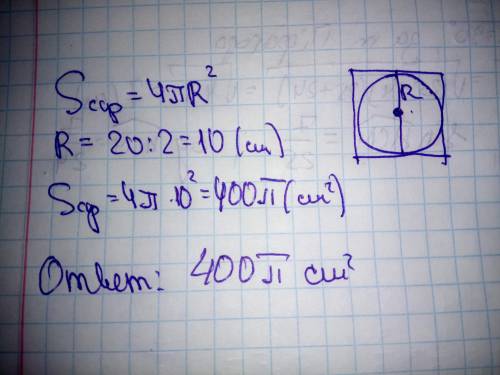 Sсф = 4πR²
R
R = 20:2 = 10 (см)
Sсф = 4π·10² = 400π (см²)
Ответ: 400π см²